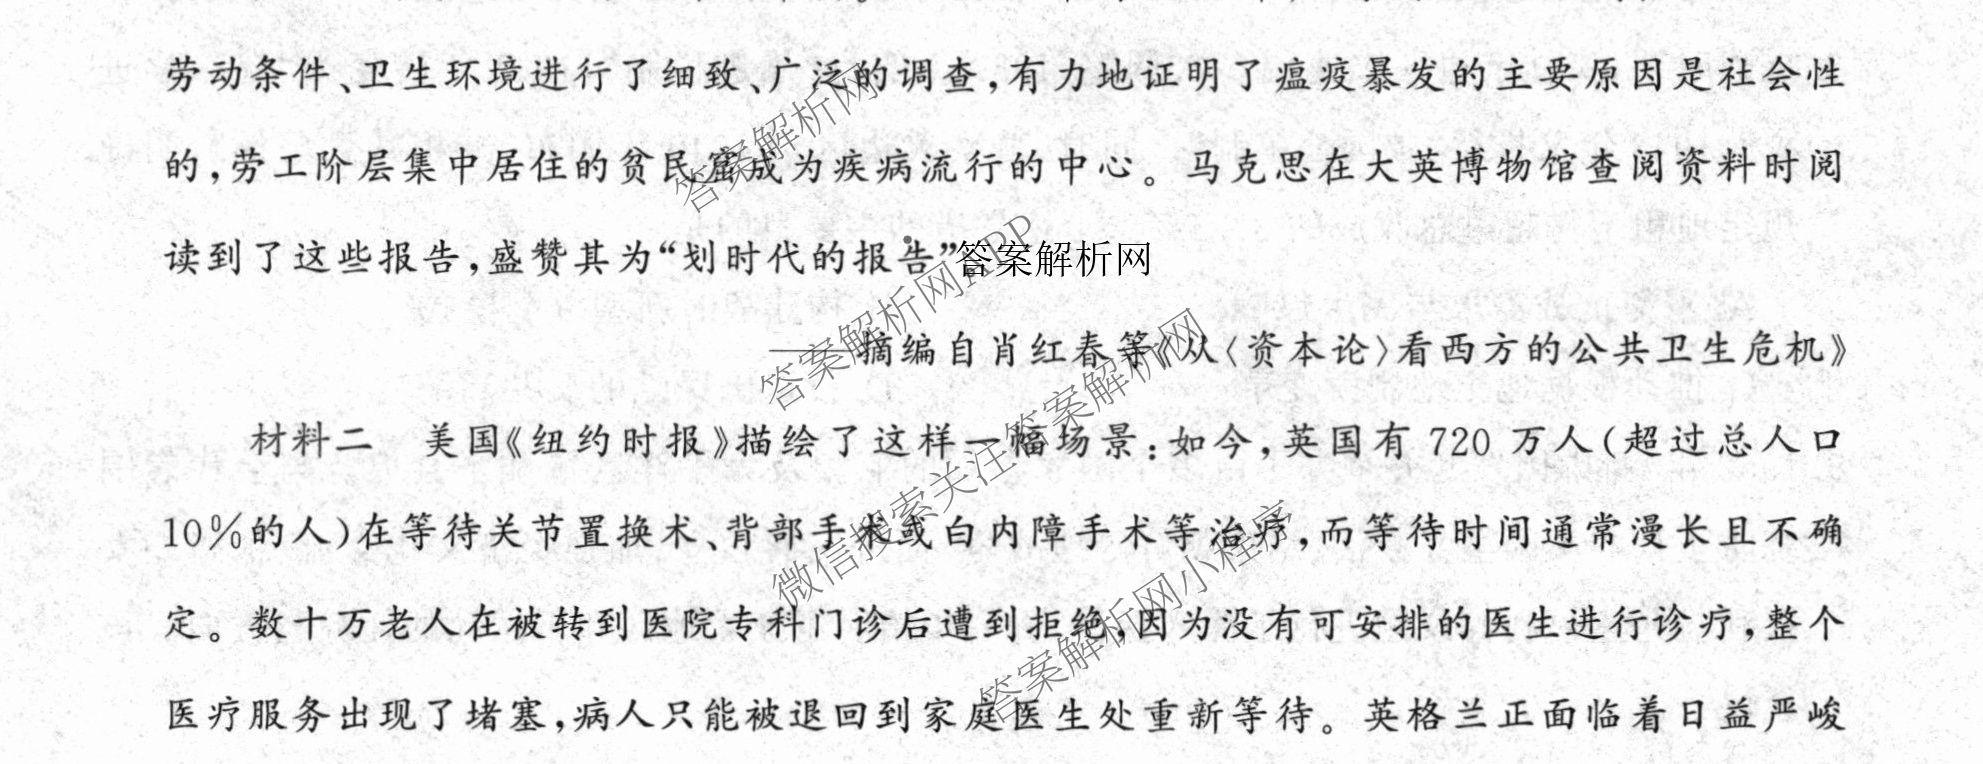 劳动条件、卫生环境进行了细致、广泛的调查,有力地证明了瘟疫暴发的主要原因是社会性
的,劳工阶层集中居住的贫民窟成为疾病流行的中心。马克思在大英博物馆查阅资料时阅
读到了这些报告,盛赞其为“划时代的报告”。
答案解析网
——摘编自肖红春等《从〈资本论〉看西方的公共卫生危机》
材料二 美国《纽约时报》描绘了这样一幅场景:如今,英国有 720 万人(超过总人口
10%的人)在等待关节置换术、背部手术或白内障手术等治疗,而等待时间通常漫长且不确
定。数十万老人在被转到医院专科门诊后遭到拒绝,因为没有可安排的医生进行诊疗,整个
医疗服务出现了堵塞,病人只能被退回到家庭医生处重新等待。英格兰正面临着日益严峻
答案解析网
答案解析网APP
微信搜索关注答案解析网
答案解析网小程序